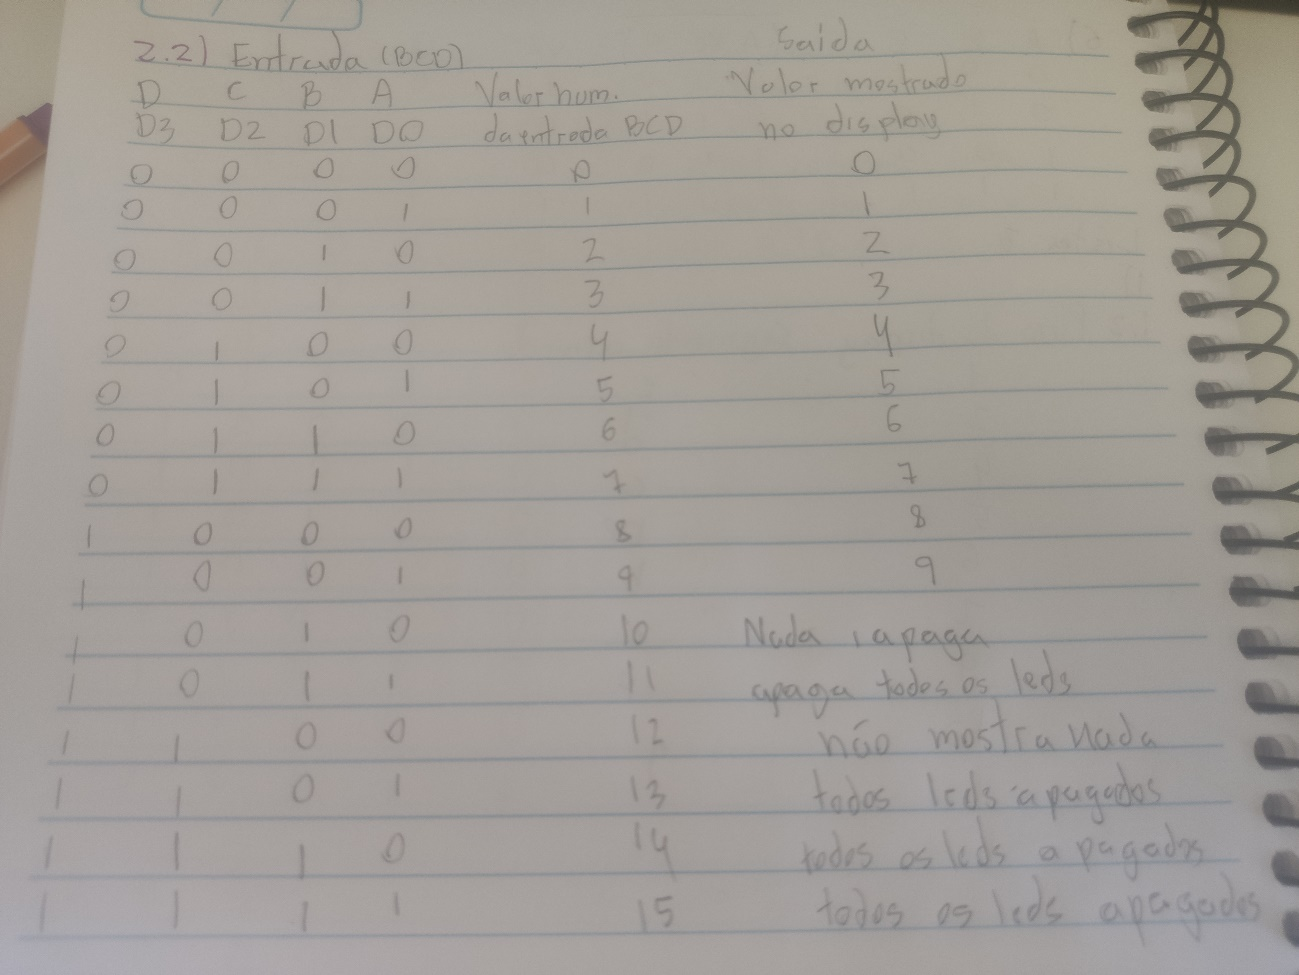 2.2) Entrada (BCD) Saida
D C B A Valor num. Valor mostrado
D3 D2 D1 D0 da entrada BCD no display
0 0 0 0 0 0
0 0 0 1 1 1
0 0 1 0 2 2
0 0 1 1 3 3
0 1 0 0 4 4
0 1 0 1 5 5
0 1 1 0 6 6
0 1 1 1 7 7
1 0 0 0 8 8
1 0 0 1 9 9
1 0 1 0 10 Nada, apaga
1 0 1 1 11 apaga todos os leds
1 1 0 0 12 não mostra nada
1 1 0 1 13 todos leds apagados
1 1 1 0 14 todos os leds apagados
1 1 1 1 15 todos os leds apagados